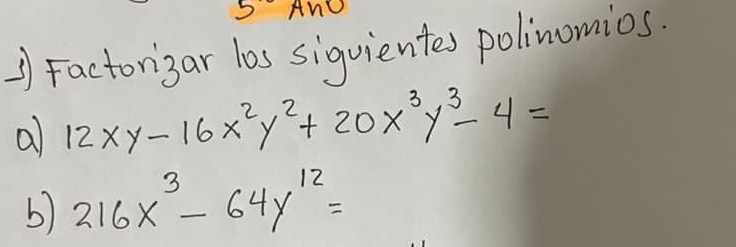 5to Año
1) Factorizar los siguientes polinomios.
a) 12xy - 16x²y² + 20x³y³ - 4 =
b) 216x³ - 64y¹² =